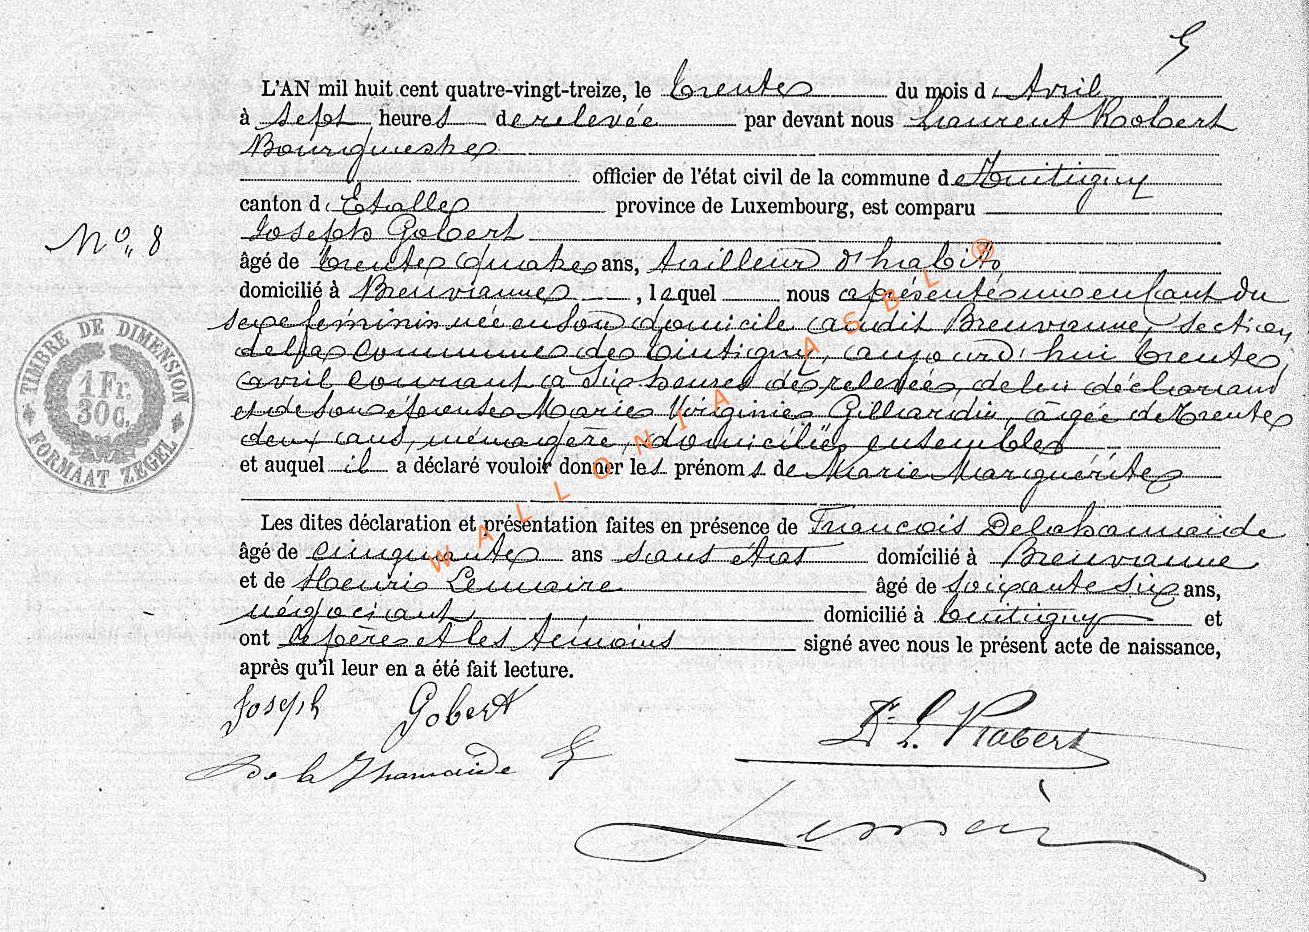 5
L'AN mil huit cent quatre-vingt-treize, le trente du mois d'Avril
à sept heures de relevée par devant nous Laurent Robert
Bourgmestre
officier de l'état civil de la commune de Tintigny
canton d'Etalle province de Luxembourg, est comparu
Joseph Gobert
N° 8
âgé de trente quatre ans, tailleur d'habits,
domicilié à Breuvanne, lequel nous a présenté un enfant du
sexe féminin née en son domicile audit Breuvanne, section
de la commune de Tintigny, aujourd'hui trente
avril courant à six heures de relevée, de lui déclarant
et de son épouse Marie Virginie Gillardin, âgée de trente
deux ans, ménagère, domiciliés ensemble
et auquel il a déclaré vouloir donner les prénoms de Marie Marguérite
Les dites déclaration et présentation faites en présence de François Delahamaide
âgé de cinquante ans sans état domicilié à Breuvanne
et de Henri Lemaire âgé de soixante six ans,
négociant domicilié à Tintigny et
ont le père et les témoins signé avec nous le présent acte de naissance,
après qu'il leur en a été fait lecture.
Joseph Gobert
Dr. L. Robert
De la Hamaide F
Lemaire
TIMBRE DE DIMENSION
1 Fr.
30 C.
FORMAAT ZEGEL
WALLONIA ASBL ®